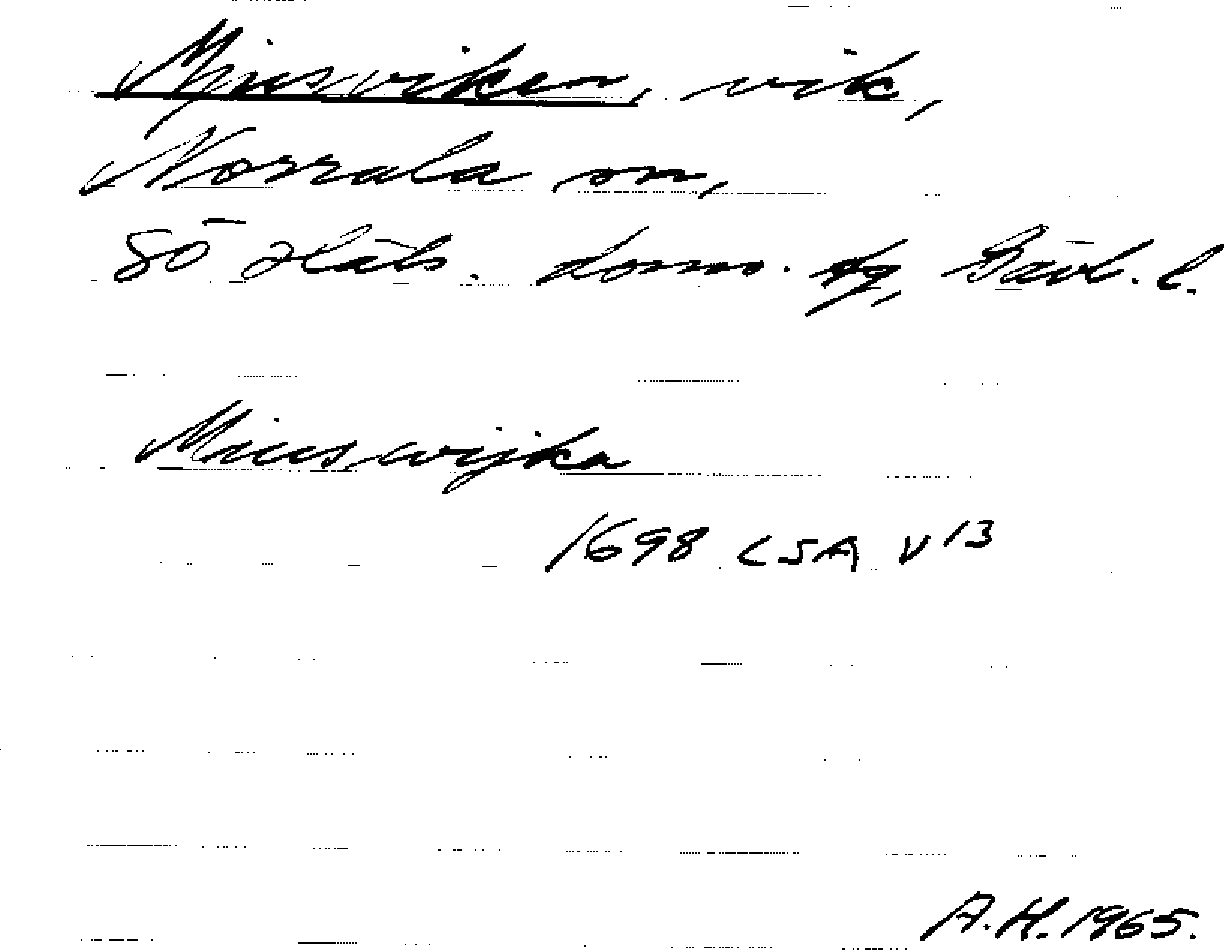 Mjusviken, vik,
Norrala sn,
SÖ Häls. doms. tg, Gävl. l.
Miuswijka
1698 LSA V 13
A.H. 1965.